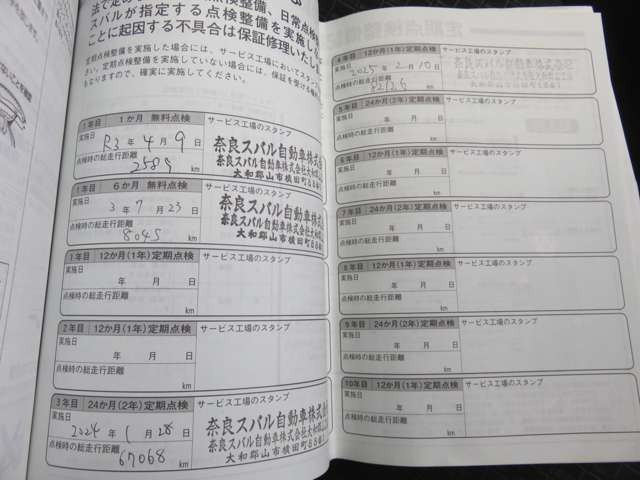 法で定め
点検整備、日常点検
スバルが指定する点検整備を実施し
ことに起因する不具合は保証修理いたし
定期点検整備を実施した場合には、サービス工場においてスタン
さい。定期点検整備を実施していない場合には、保証を受ける
もなりますので、確実に実施してください。
1年目 1か月 無料点検 サービス工場のスタンプ
実施日
R3年 4月 9日
点検時の総走行距離
km
奈良スバル自動車株式
奈良スバル自動車株式会社大和
大和郡山市横田町
1年目 6か月 無料点検 サービス工場のスタンプ
実施日
3年 7月 23日
点検時の総走行距離
8045 km
奈良スバル自動車株式
奈良スバル自動車株式会社大和
大和郡山市横田町
1年目 12か月(1年)定期点検 サービス工場のスタンプ
実施日
年 月 日
点検時の総走行距離
km
2年目 12か月(1年)定期点検 サービス工場のスタンプ
実施日
年 月 日
点検時の総走行距離
km
3年目 24か月(2年)定期点検 サービス工場のスタンプ
実施日
2024年 1月 28日
点検時の総走行距離
67068 km
奈良スバル自動車株式
奈良スバル自動車株式会社大
大和郡山市横田町
4年目 12か月(1年)定期点検 サービス工場のスタンプ
実施日
2025年 2月10日
点検時の総走行距離
km
5年目 24か月(2年)定期点検 サービス工場のスタンプ
実施日
年 月 日
点検時の総走行距離
km
6年目 12か月(1年)定期点検 サービス工場のスタンプ
実施日
年 月 日
点検時の総走行距離
km
7年目 24か月(2年)定期点検 サービス工場のスタンプ
実施日
年 月 日
点検時の総走行距離
km
8年目 12か月(1年)定期点検 サービス工場のスタンプ
実施日
年 月 日
点検時の総走行距離
km
9年目 24か月(2年)定期点検 サービス工場のスタンプ
実施日
年 月 日
点検時の総走行距離
km
10年目 12か月(1年)定期点検 サービス工場のスタンプ
実施日
年 月 日
点検時の総走行距離
km